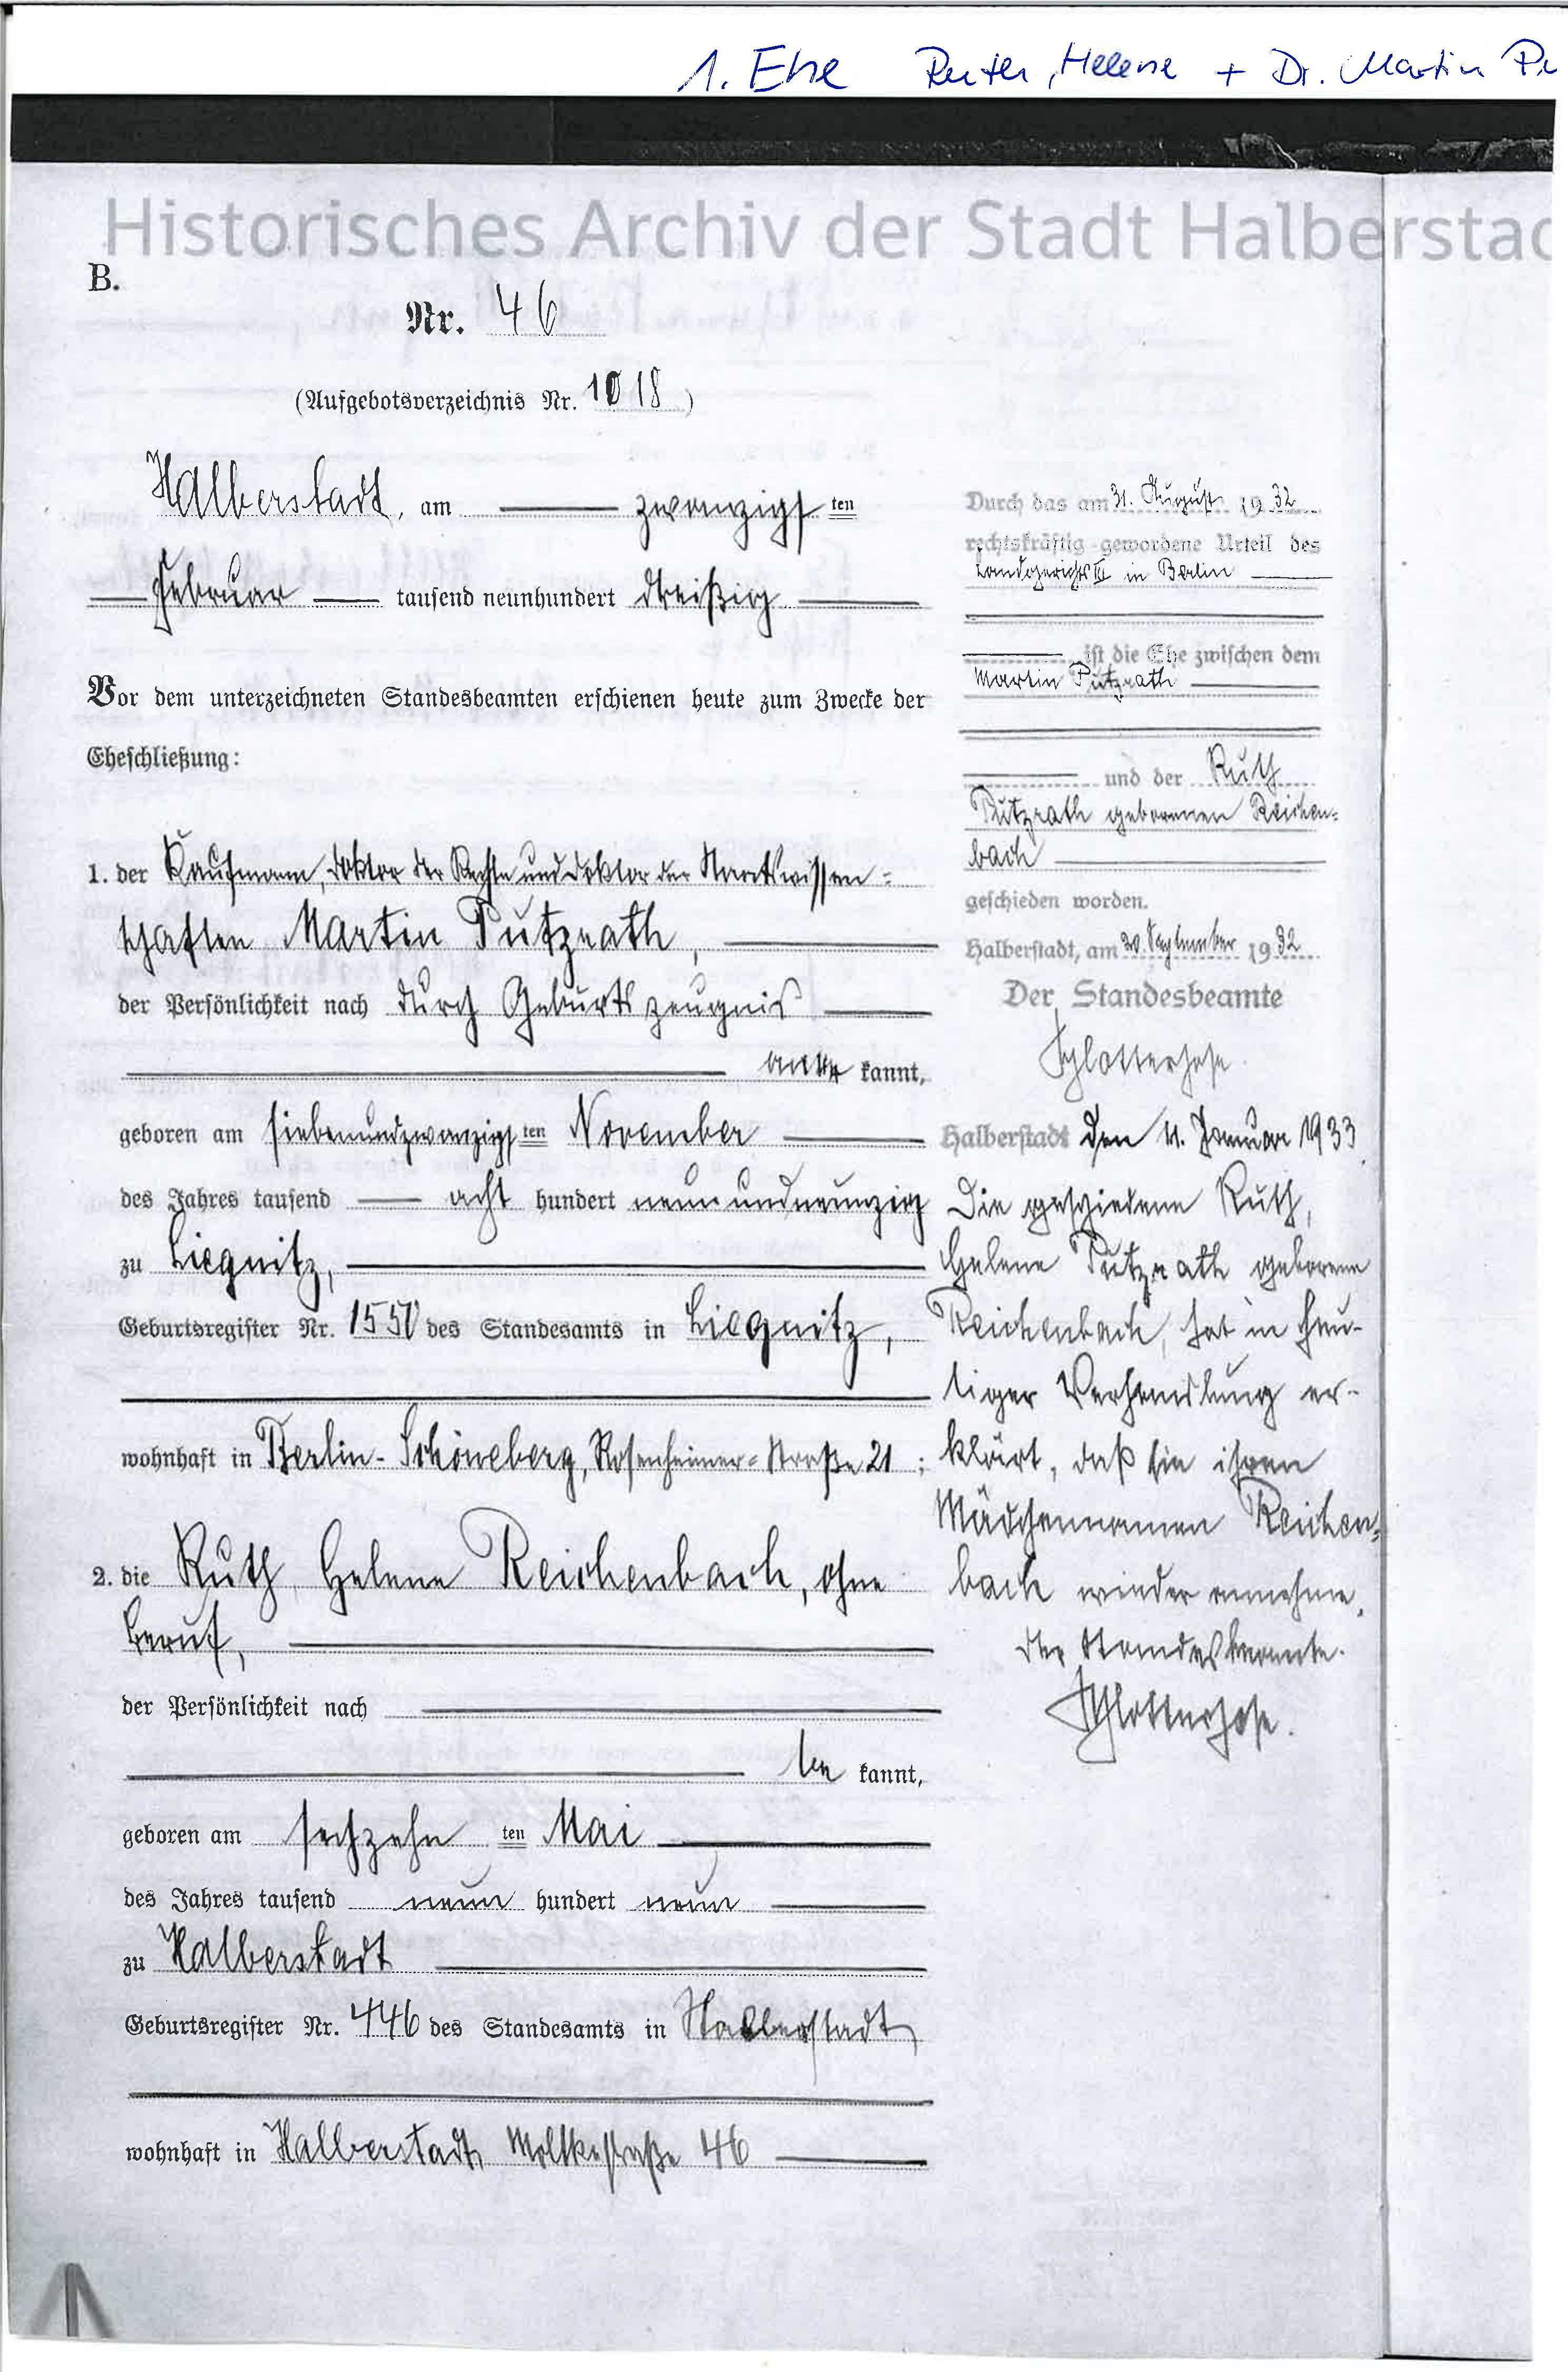 1. Ehe Reiter, Helene + Dr. Martin
Historisches Archiv der Stadt Halberstad
B.
Nr. 46
(Aufgebotsverzeichnis Nr. 1018)
Halberstadt, am zwanzigsten
Februar tausend neunhundert dreißig
Vor dem unterzeichneten Standesbeamten erschienen heute zum Zwecke der
Eheschließung:
1. der Kaufmann, Doktor der Rechte und Doktor der Staatswissen=
schaften Martin Putzrath,
der Persönlichkeit nach durch Geburtszeugnis
aner kannt,
geboren am siebenundzwanzigsten November
des Jahres tausend acht hundert neunundneunzig
zu Liegnitz,
Geburtsregister Nr. 1550 des Standesamts in Liegnitz,
wohnhaft in Berlin-Schöneberg, Rosenheimer-Straße 21;
2. die Ruth Helene Reichenbach, ohne
Beruf,
der Persönlichkeit nach
be kannt,
geboren am sechzehnten Mai
des Jahres tausend neun hundert neun
zu Halberstadt
Geburtsregister Nr. 446 des Standesamts in Halberstadt,
wohnhaft in Halberstadt, Moltkestraße 46
Durch das am 31. August 1932
rechtskräftig gewordene Urteil des
Landgerichts III in Berlin
ist die Ehe zwischen dem
Martin Putzrath
und der Ruth
Putzrath geborenen Reichen=
bach
geschieden worden.
Halberstadt, am 20. September 1932
Der Standesbeamte
Schlotterhose
Halberstadt den 11. Januar 1933
Die geschiedene Ruth,
Helene Putzrath geborene
Reichenbach, hat in heu-
tiger Verhandlung er-
klärt, daß sie ihren
Mädchennamen Reichen=
bach wieder annehme.
Der Standesbeamte.
Schlotterhose.